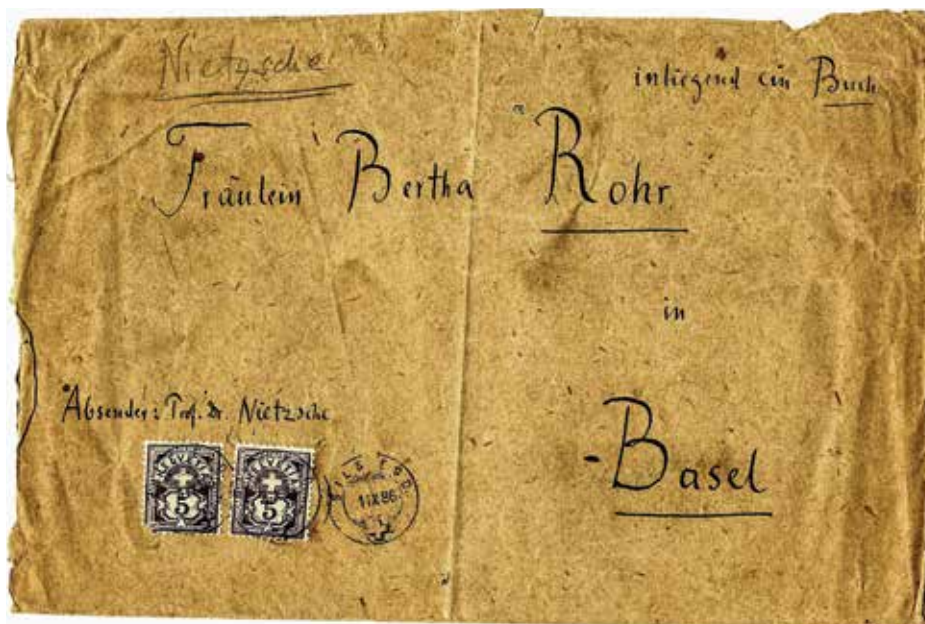 Nietzsche
inliegend ein Buch
Fräulein Bertha Rohr
in
Basel
Absender: Prof. Dr. Nietzsche
HELVETIA HELVETIA
5 5
SILS
IX 86